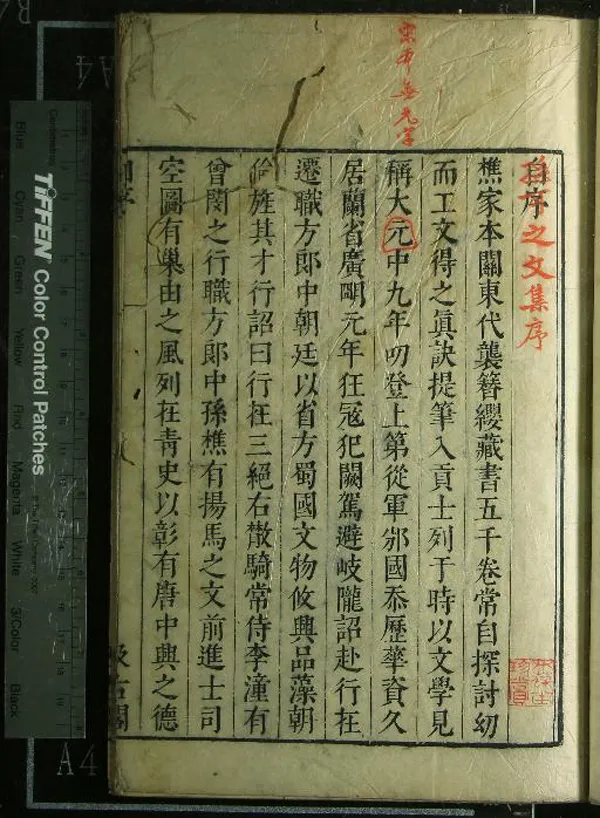 宋本無元字
孫可之文集序
自序
樵家本關東代襲簪纓藏書五千卷常自探討幼
而工文得之眞訣提筆入貢士列于時以文學見
稱大元中九年叨登上第從軍邠國忝歷華資久
居蘭省廣明元年狂冦犯闕駕避岐隴詔赴行在
遷職方郎中朝廷以省方蜀國文物攸興品藻朝
倫旌其才行詔曰行在三絕右散騎常侍李潼有
曾閔之行職方郎中孫樵有揚馬之文前進士司
空圖有巢由之風列在靑史以彰有唐中興之德
汲古閣
TIFFEN Color Control Patches
Blue Cyan Green Yellow Red Magenta White 3/Color Black
A4